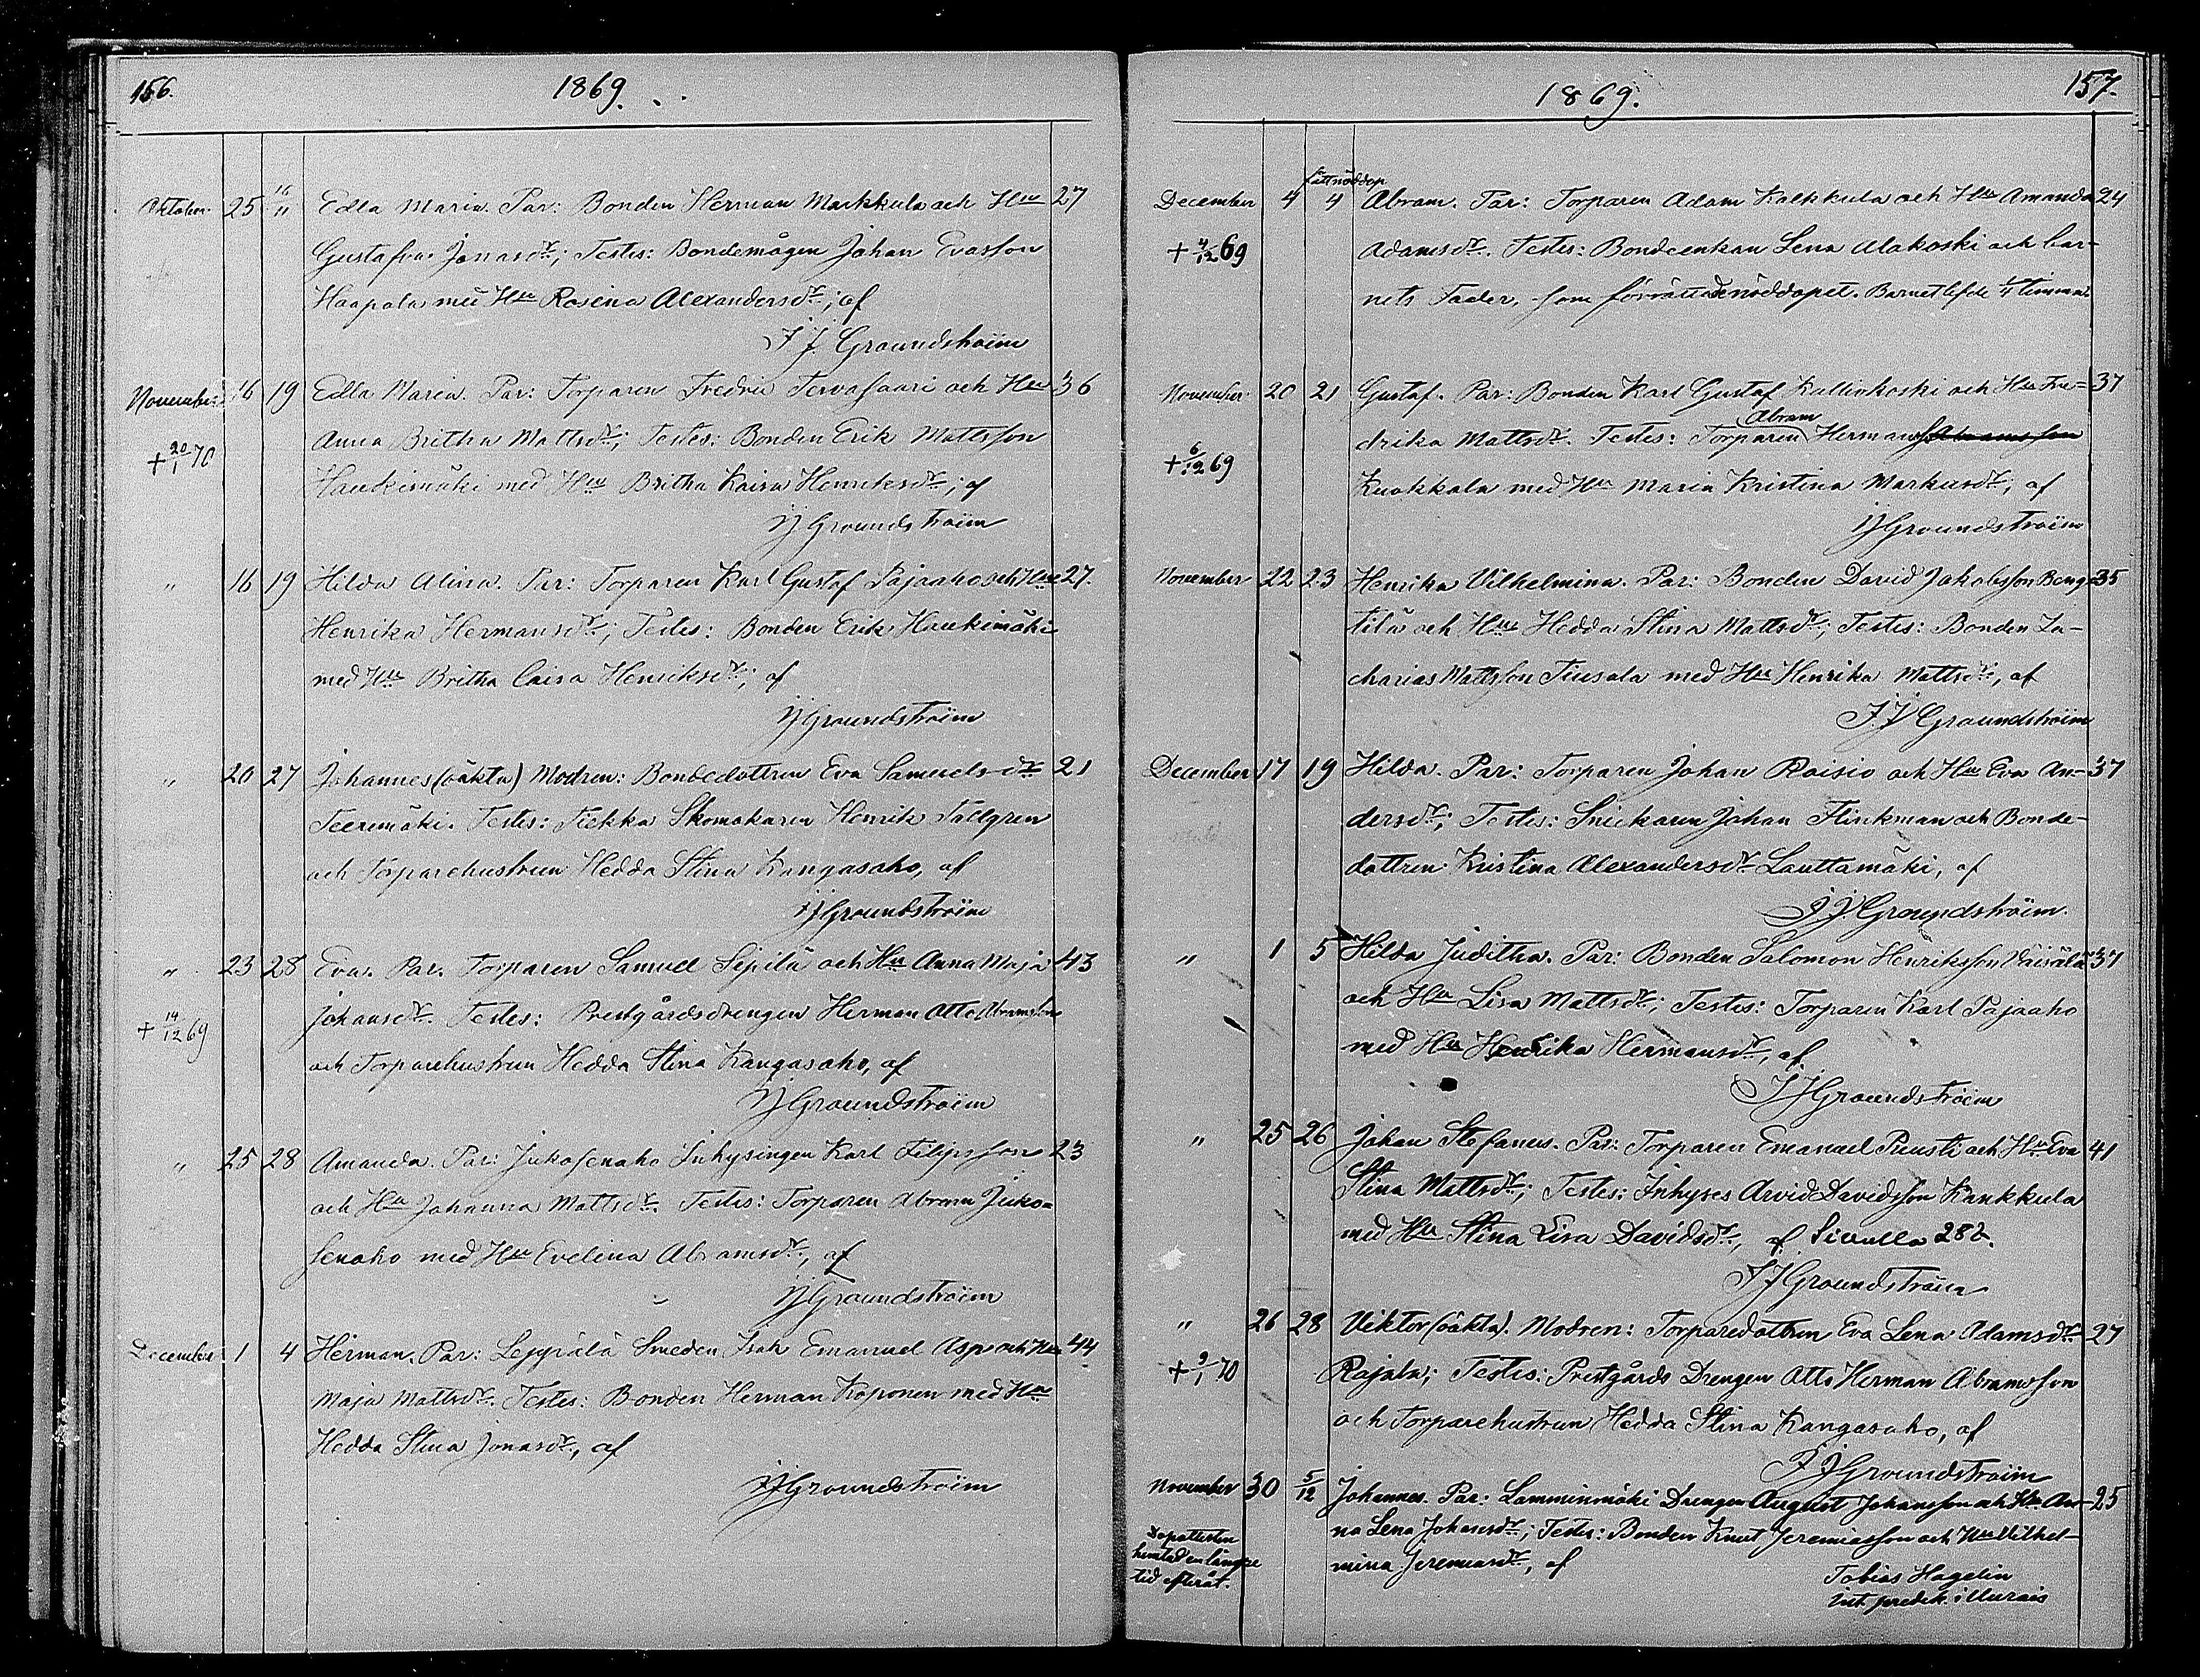 156. 1869.
Oktober 25 16/11 Edla Maria. Par: Bonden Herman Markkula och Hu 27
Gustafva Jonasdr; Testes: Bondemågen Johan Evasson
Haapala med Hu Rosina Alexandersdr; af
J J Groundstroim
November 16 19 Edla Maria. Par: Torparen Fredric Tervasaari och Hu 36
+ 20/1 70 Anna Britha Mattsdr; Testes: Bonden Erik Mattsson
Haukimäki med Hu Britha Kaisa Henriksdr; af
JJ Groundstroim
" 16 19 Hilda Alina. Par: Torparen Karl Gustaf Pajaaho och Hu 27.
Henrika Hermansdr; Testes: Bonden Erik Haukimäki
med Hu Britha Caisa Henriksdr; af
JJ Groundstroim
" 20 27 Johannes (oäkta) Modren: Bondedottren Eva Samuelsdr 21
Teerimäki. Testes: Skomakaren Henrik Tällgren
och Torparehustrun Hedda Stina Kangasaho, af
JJ Groundstroim
" 23 28 Eva. Par. Torparen Samuel Sepilä och Hu Anna Maja 43
+ 14/12 69 Johansdr. Testes: Prestgårdsdrengen Herman Otto Abramsson
och Torparehustrun Hedda Stina Kangasaho, af
JJ Groundstroim
" 25 28 Amanda. Par: Jukosenaho Inhysingen Karl Filipsson 23
och Hu Johanna Mattsdr. Testes: Torparen Abram Juko-
senaho med Hu Evelina Abramsdr, af
JJ Groundstroim
December 1 4 Herman. Par: Leppälä Smeden Isak Emanuel Asp och Hu 44
Maja Mattsdr. Testes: Bonden Herman Koponen med Hu
Hedda Stina Jonasdr, af
JJ Groundstroim
1869. 157.
nöddop
December 4 4 Abram. Par: Torparen Adam Kalkkula och Hu Amanda 24
+ 4/12 69 Adamsdr. Testes: Bondeenkan Lena Alakoski och bar-
nets Fader, som förrättade nöddopet. Barnet lefde 1/4 timma
November 20 21 Gustaf. Par: Bonden Karl Gustaf Kalliokoski och Hu Fre- 37
Abram
drika Mattsdr. Testes: Torparen Herman Abramsson
+ 6/12 69 Kuokkala med Hu Maria Kristina Markusdr; af
JJ Groundstroim
November 22 23 Henrika Vilhelmina. Par: Bonden David Jakobsson Beng- 35
tilä och Hu Hedda Stina Mattsdr; Testes: Bonden Za-
charias Mattsson Tiusala med Hu Henrika Mattsdr, af
J.J Groundstroim
December 17 19 Hilda. Par: Torparen Johan Raisio och Hu Eva An- 37
dersdr; Testes: Snickaren Johan Flinkman och Bonde-
dottren Kristina Alexandersdr Lauttamäki, af
J J Groundstroim.
" 1 5 Hilda Juditha. Par: Bonden Salomon Henriksson Väisälä 37
och Hu Lisa Mattsdr; Testes: Torparen Karl Pajaaho
med Hu Henrika Hermansdr, af
J J Groundstroim
" 25 26 Johan Stefanus. Par: Torparen Emanuel Puusti och Hu Eva 41
Stina Mattsdr; Testes: Inhyses Arvid Davidsson Kankkula
med Hu Stina Lisa Davidsdr, af Sivulla 282.
J J Groundstroim
" 26 28 Viktor (oäkta). Modren: Torparedottren Eva Lena Adamsdr 27
+ 9/1 70 Rajala; Testes: Prestgårds Drengen Otto Herman Abramsson
och Torparehustrun Hedda Stina Kangasaho, af
J J Groundstroim
November 30 5/12 Johannes. Par: Lamminmäki Drengen August Johansson och Hu An- 25
na Lena Johansdr; Testes: Bonden Knut Jeremiasson och Hu Vilhel-
mina Jeremiasdr, af
Dopattesten
hemtad en längre
tid efteråt.
Tobias Hagelin